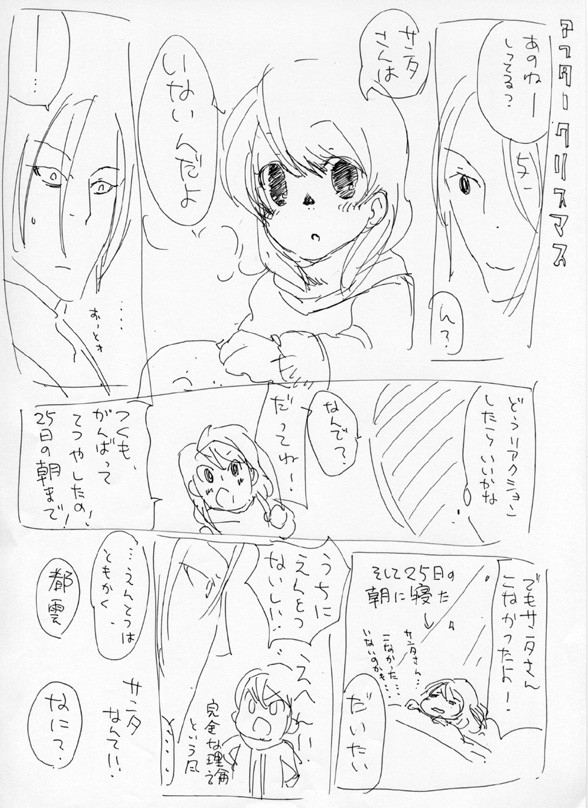 アフタークリスマス
あのねー
しってる？
ん？
サンタ
さんは
いないんだよ
…
おーとォ
…
どうリアクション
したらいいかな
なんで？
だってね！
つくも、
がんばって
てつやしたの！
25日の朝まで！
でもサンタさん
こなかったよ！
そして25日の
朝に寝た
サンタさん…
こなかった…
いないのかも…
だいたい
うちに
えんとつ
ないしい！
えへん！！
完全な理論
という風
…えんとつは
ともかく、
サンタ
なんて！！
都雲
なに？